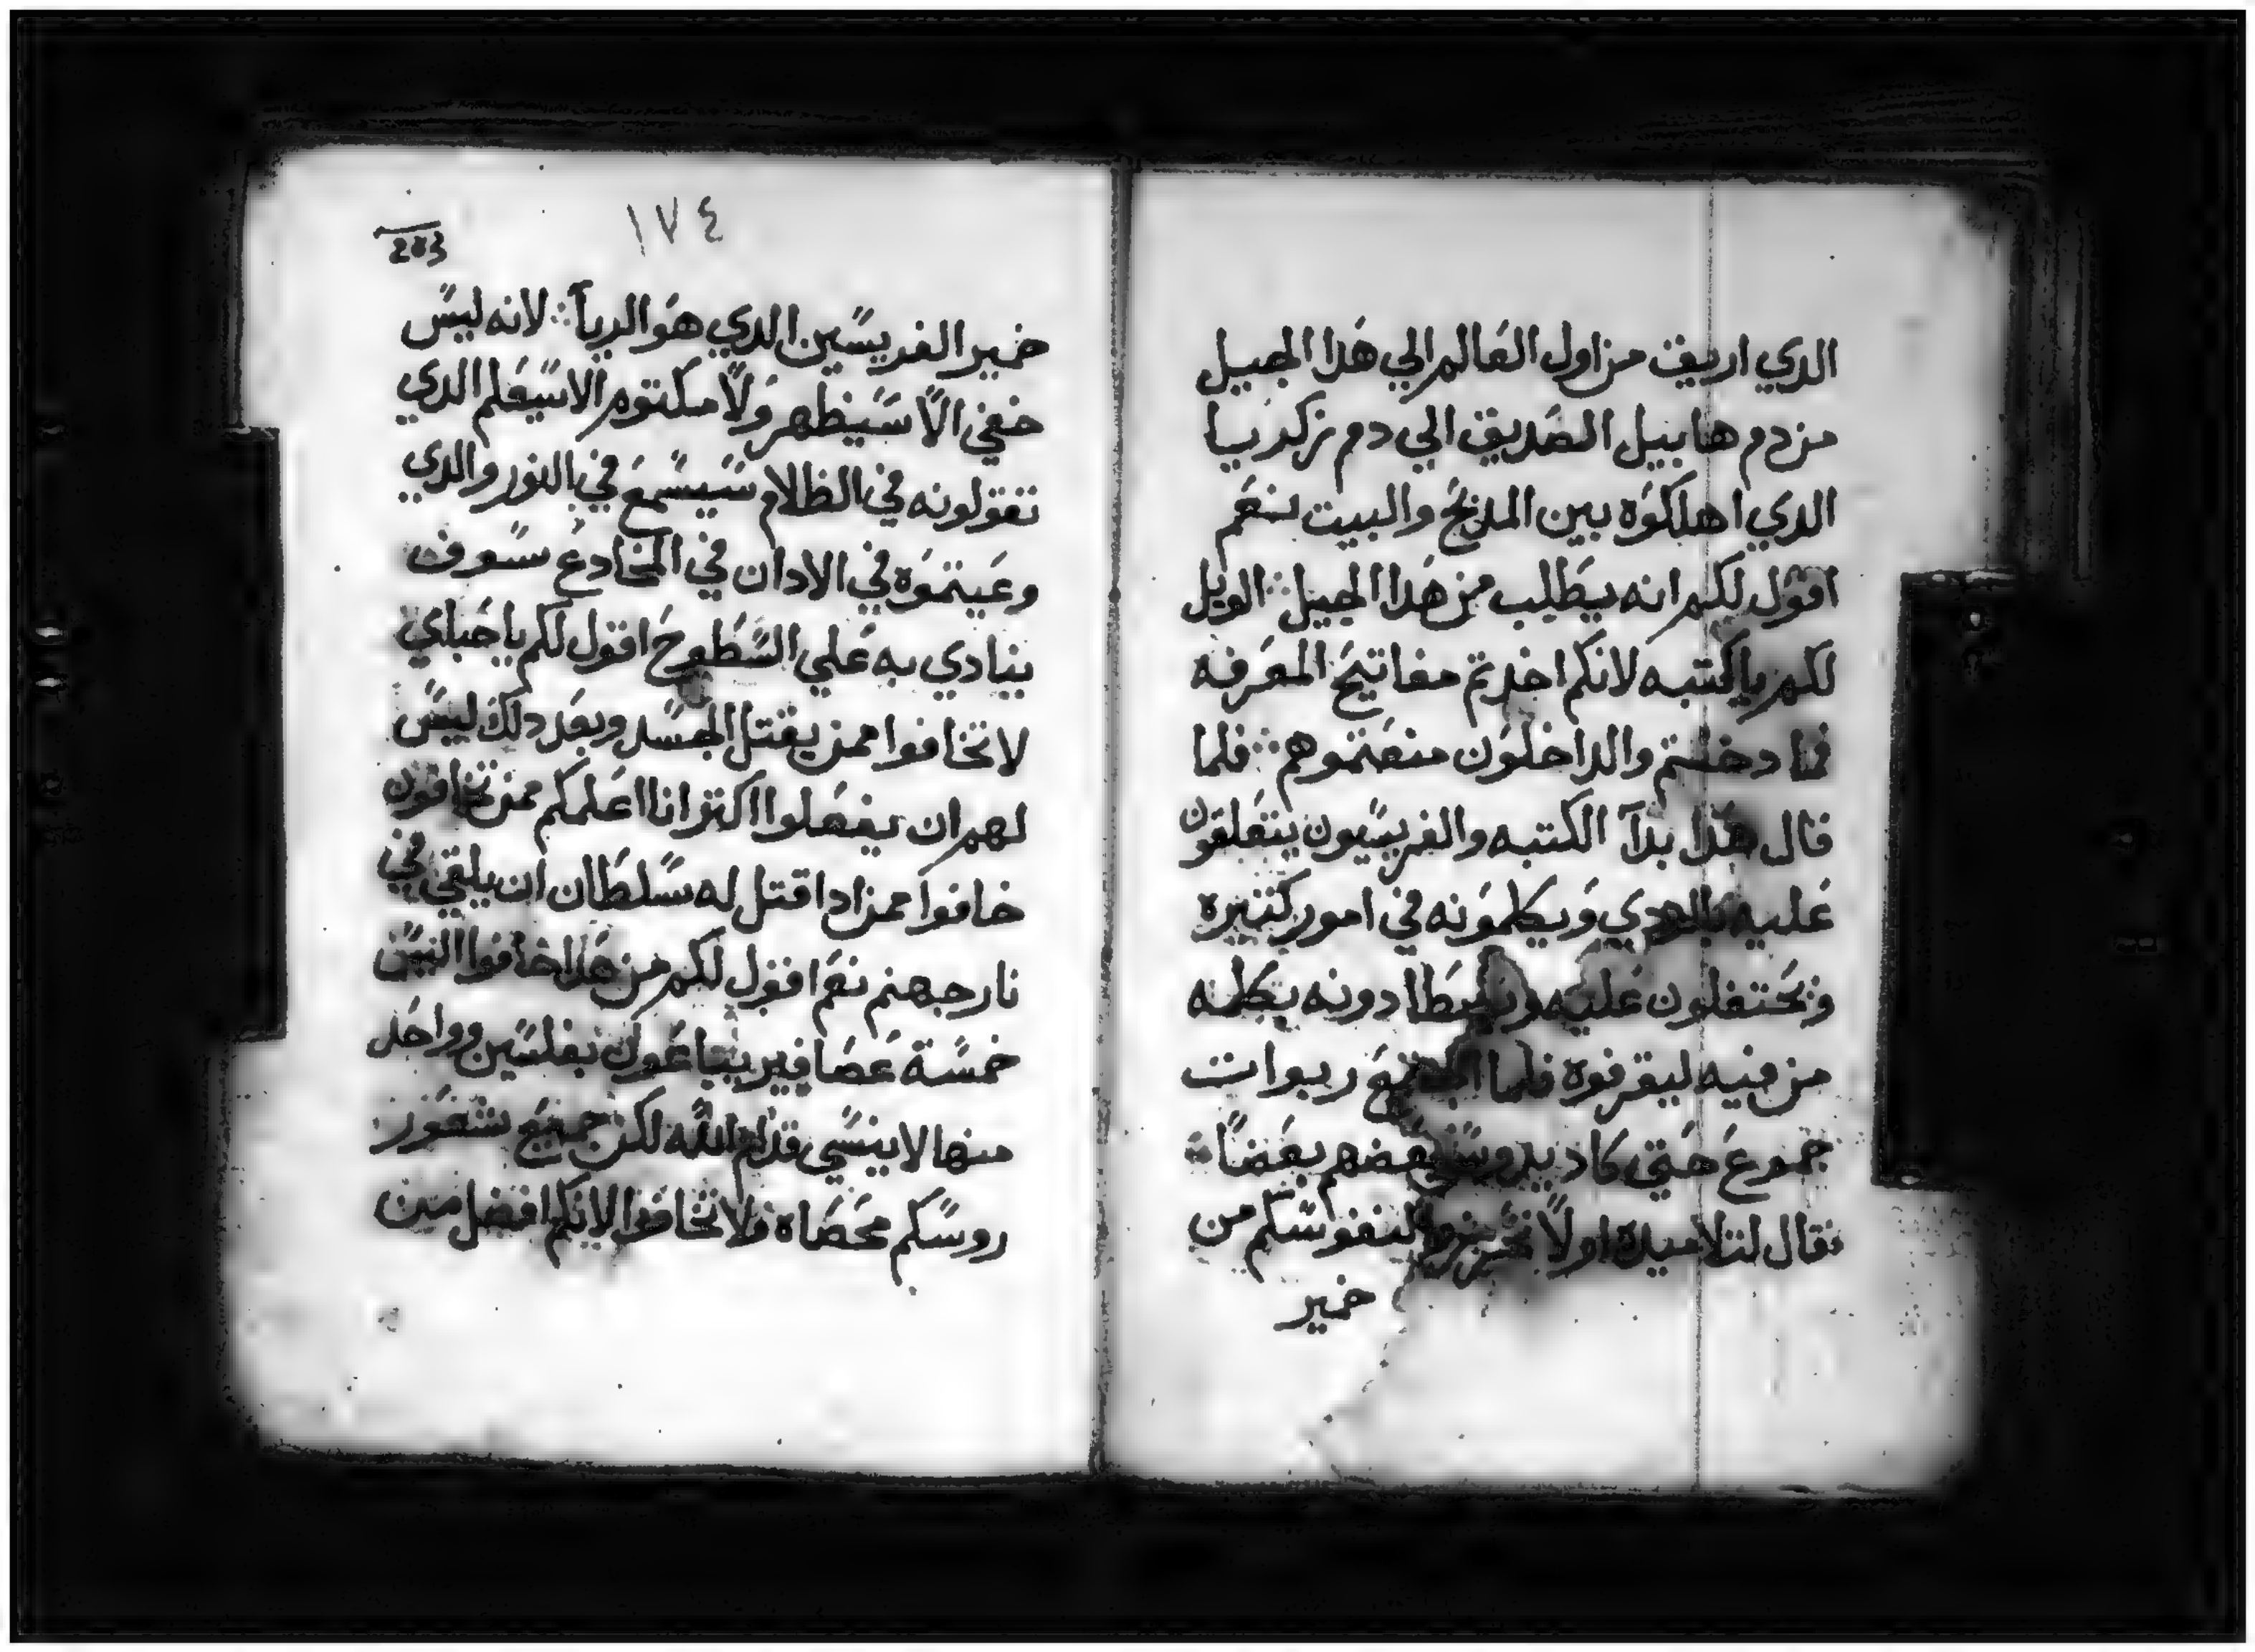 الدي اريق من اول العالم الي هدا الجيل
من دم هابيل الصديق الي دم زكريا
الدي اهلكوه بين المدبح والبيت نعم
اقول لكم انه يطلب من هدا الجيل الويل
لكم يا كتبه لانكم اخدتم مفاتيح المعرفه
فما دخلتم والداخلون منعتموهم فلما
قال هدا بدآ الكتبه والفريسيون يتعلقون
عليه بالردي ويكلمونه في امور كتيره
ويحتفلون عليه ويصطادونه بكلمه
من فيه ليقرفوه فلما اجتمع ربوات
جموع حتي كاد يدوس بعضهم بعضًا
فقال لتلاميده اولًا تحرزوا لنفوسكم من
خمير
١٧٤
203
خمير الفريسين الدي هو الريآ لانه ليس
خفي الا سيظهر ولا مكتوم الا سيعلم الدي
تقولونه في الظلام سيسمع في النور والدي
وعيتموه في الادان في المخادع سوف
ينادي به علي السطوح اقول لكم يا احباي
لا تخافوا ممن يقتل الجسد وبعد دلك ليس
لهم ان يفعلوا اكتر انا اعلمكم ممن تخافون
خافوا ممن ادا قتل له سلطان ان يلقي في
نار جهنم نعم اقول لكم من هدا خافوا اليس
خمسة عصافير يتباعون بفلسين وواحد
منها لا ينسي قدام الله لكن جميع شعور
روسكم محصاه فلا تخافوا لانكم افضل من